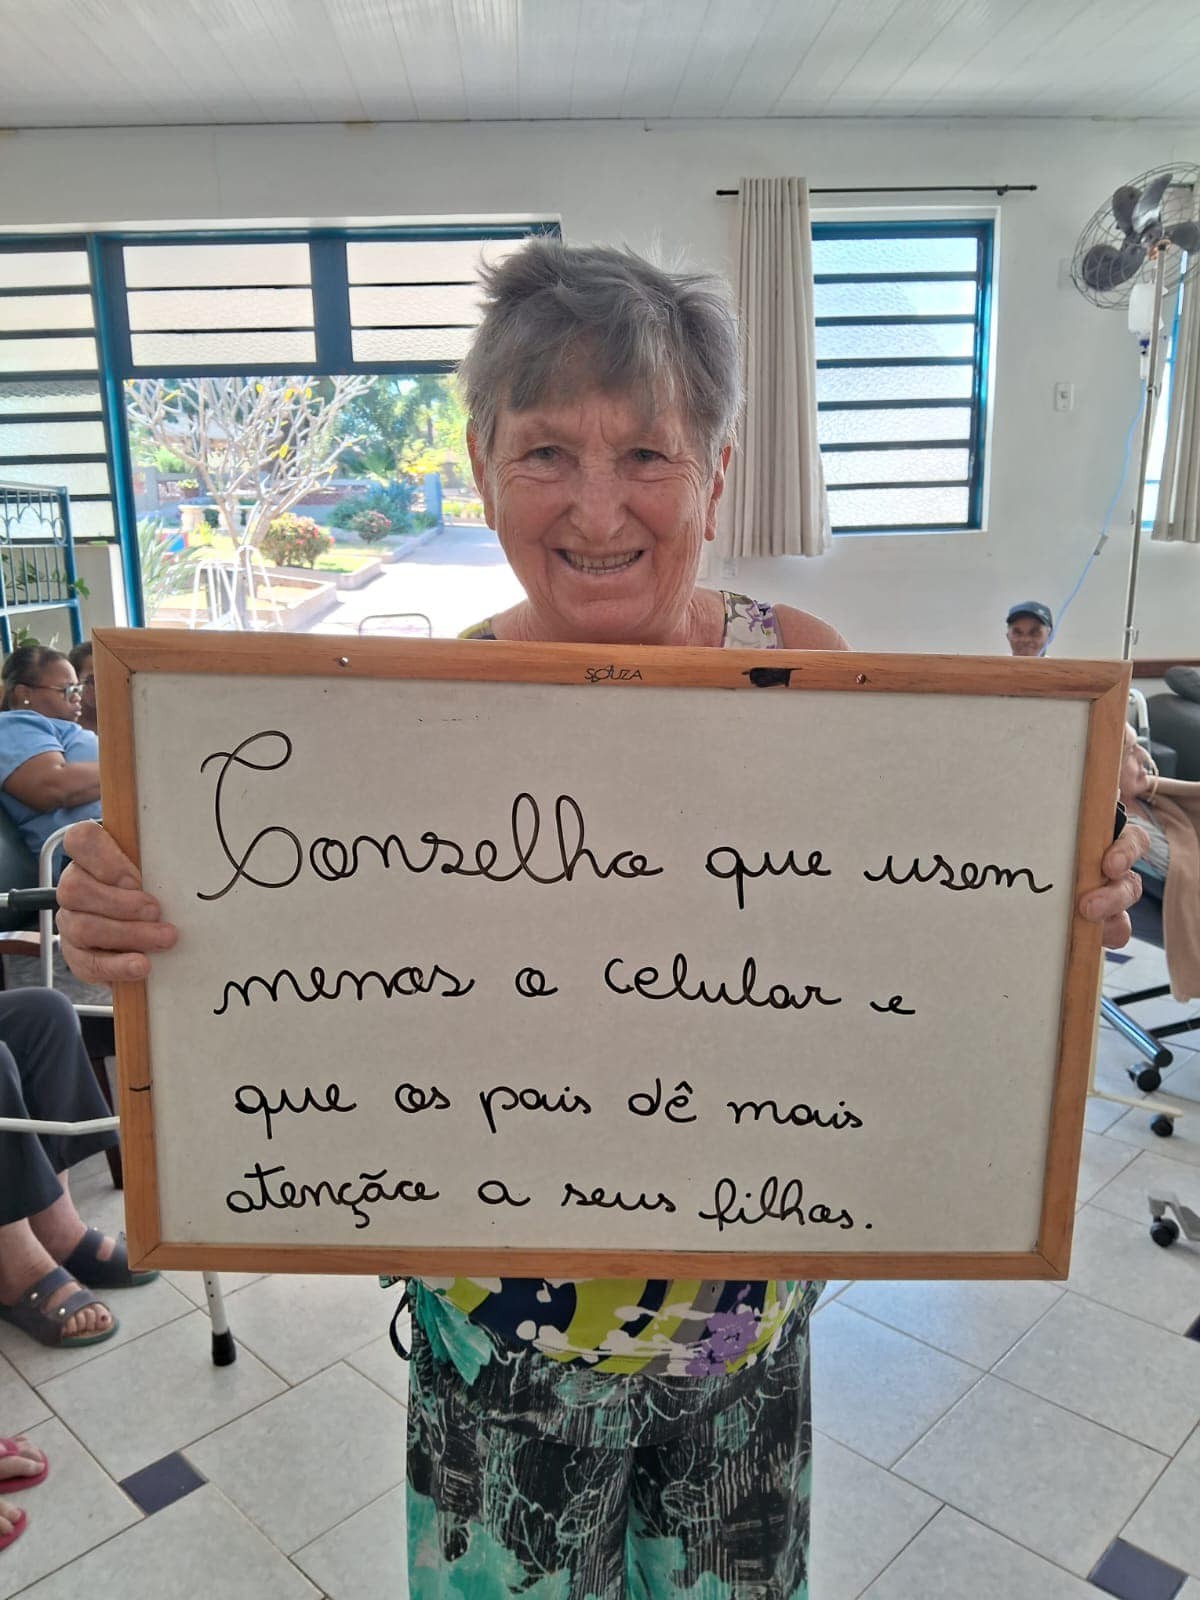 SOUZA
Conselho que usem
menos o celular e
que os pais dê mais
atenção a seus filhos.